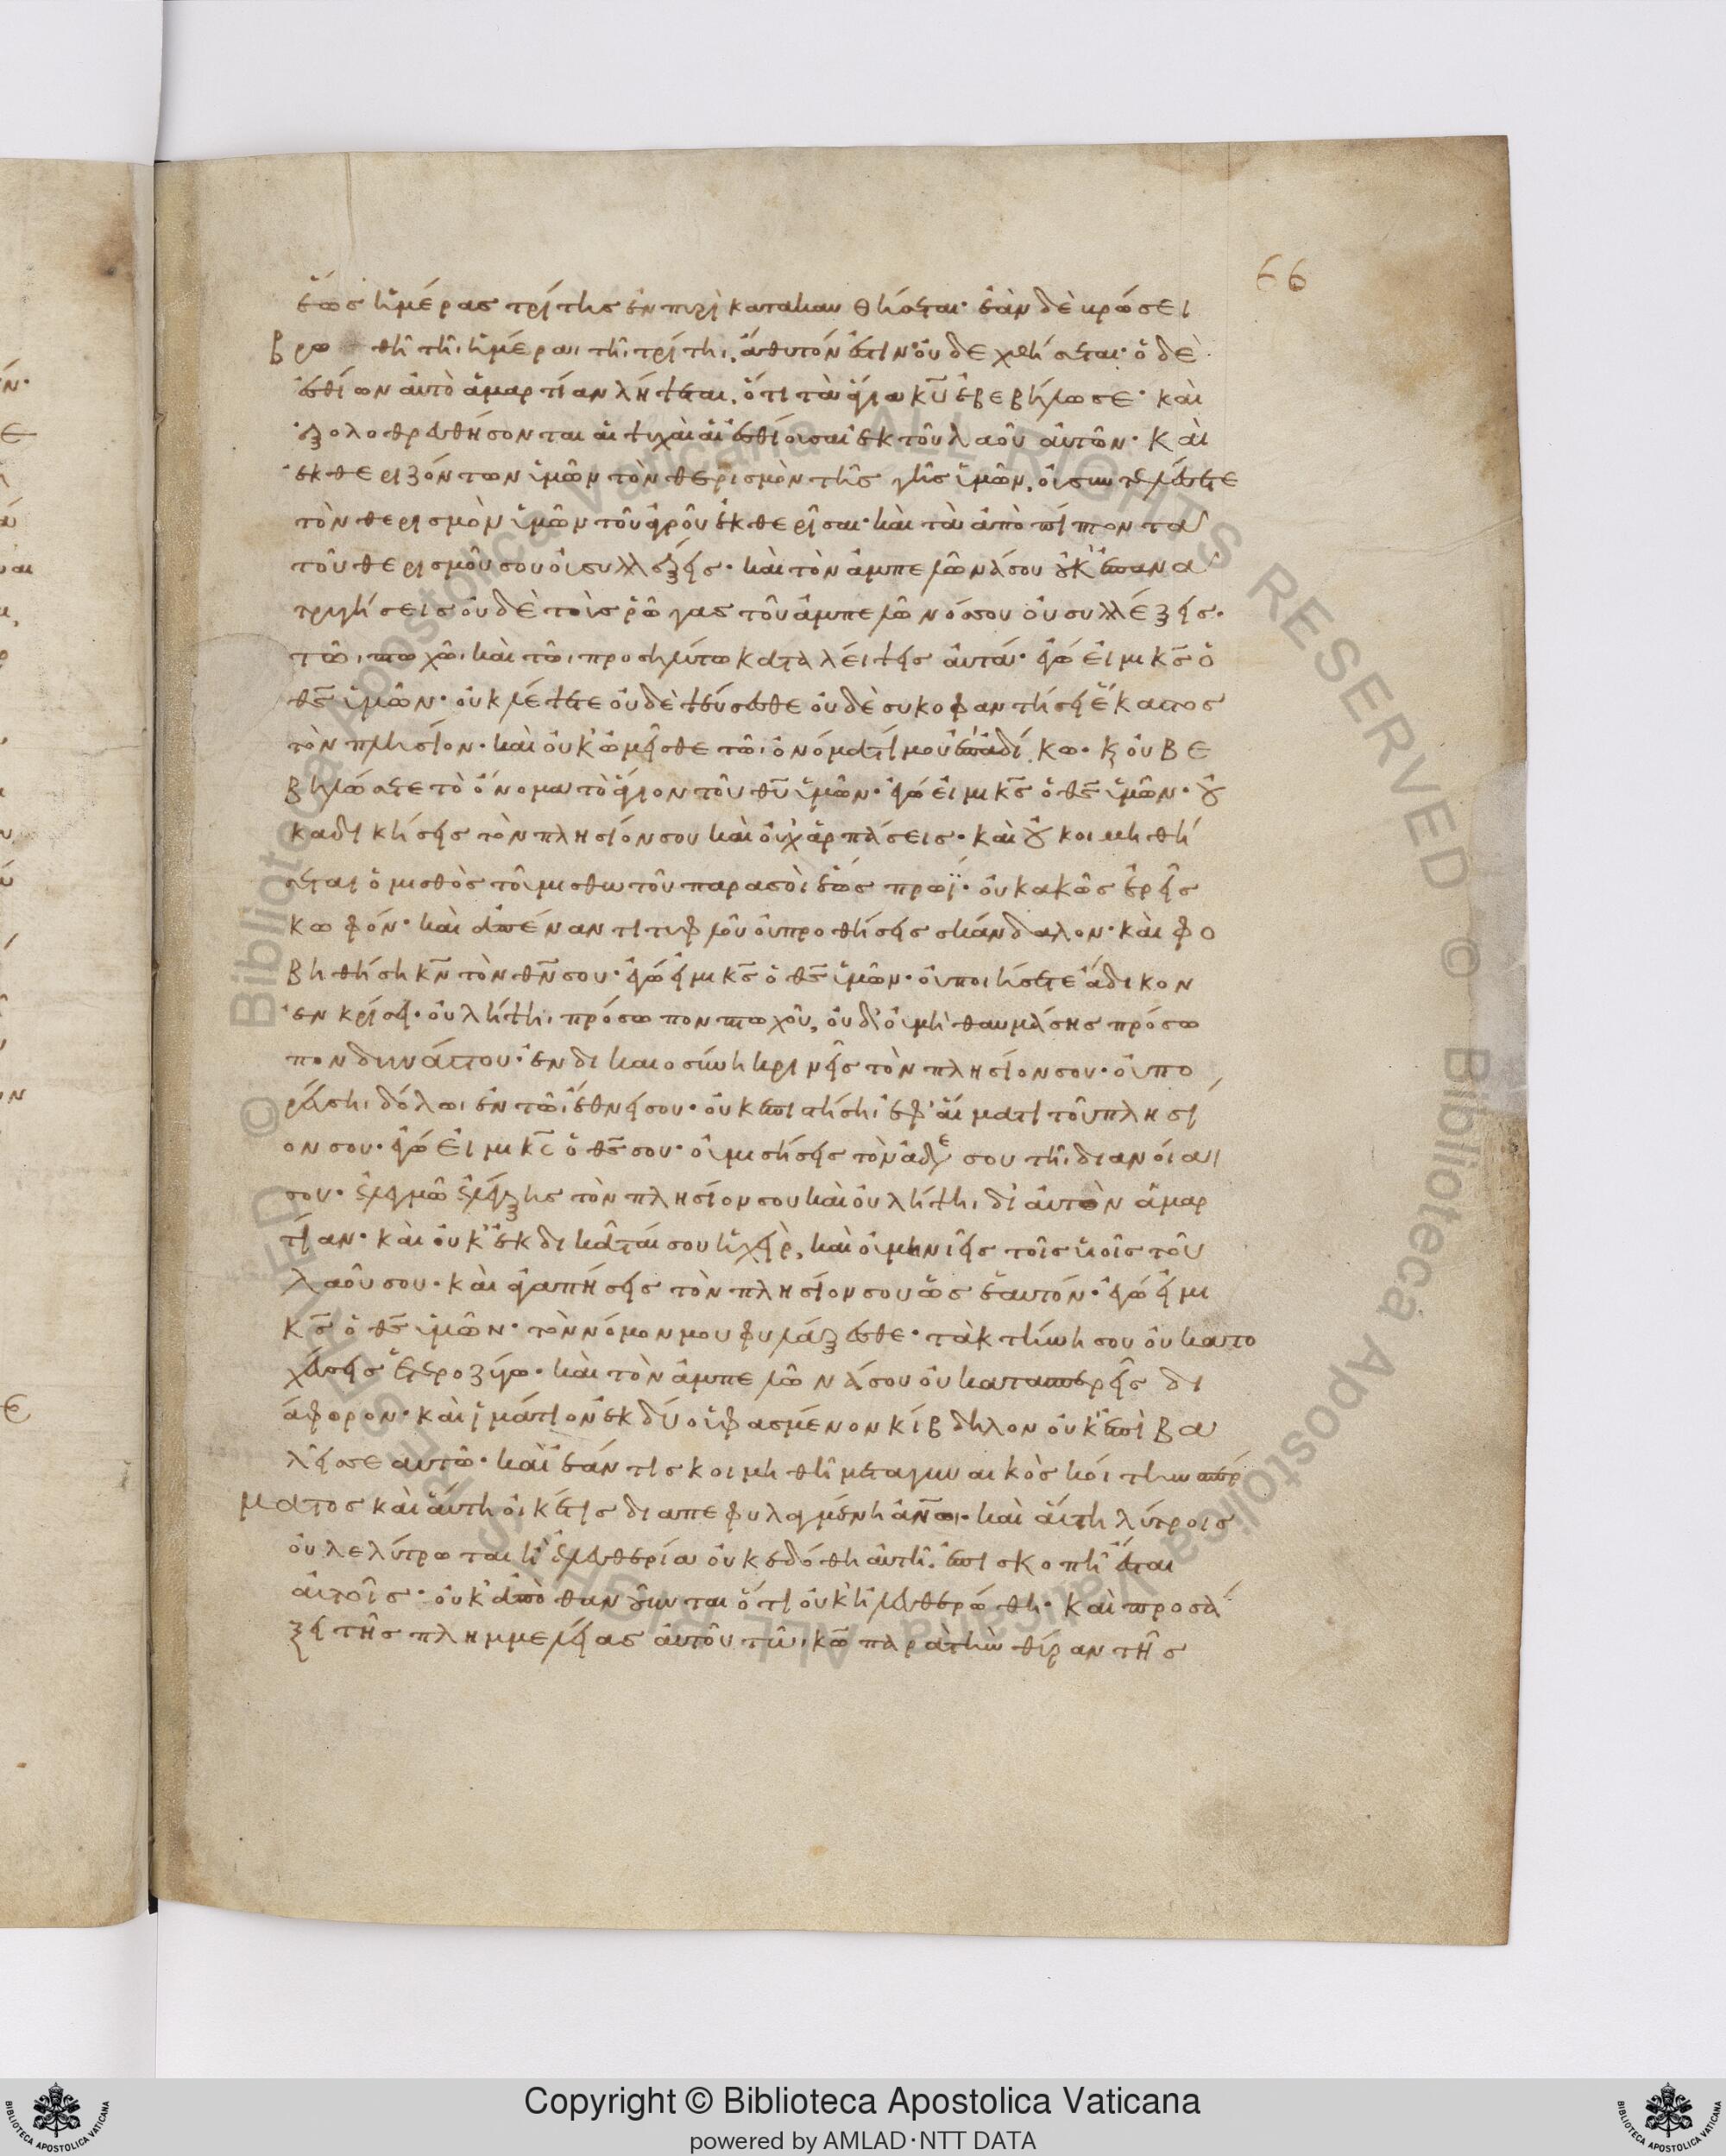 66
ἕως ἡμέρας τρίτης ἐν πυρὶ κατακαυθήσεται· ἐὰν δὲ βρώσει
βρωθῆ τῆι ἡμέραι τῆι τρίτηι, ἄθυτόν ἐστιν· οὐ δεχθήσεται· ὁ δὲ
ἐσθίων αὐτὸ ἁμαρτίαν λήψεται, ὅτι τὰ ἅγια κ̅υ̅ ἐβεβήλωσε· καὶ
ἐξολοθρευθήσονται αἱ ψυχαὶ αἱ ἐσθίουσαι ἐκ τοῦ λαοῦ αὐτῶν· καὶ
ἐκθεριζόντων ὑμῶν τὸν θερισμὸν τῆς γῆς ὑμῶν, οὐ συντελέσετε
τὸν θερισμὸν ὑμῶν τοῦ ἀγροῦ ἐκθερίσαι· καὶ τὰ ἀποπίπτοντα
τοῦ θερισμοῦ σου οὐ συλλέξεις· καὶ τὸν ἀμπελῶνά σου οὐκ ἐπανα
τρυγήσεις οὐδὲ τοὺς ῥῶγας τοῦ ἀμπελῶνός σου οὐ συλλέξεις·
τῶι πτωχῶι καὶ τῶι προσηλύτω καταλείψεις αὐτά· ἐγώ εἰμι κ̅ς̅ ὁ
θ̅ς̅ ὑμῶν· οὐ κλέψετε οὐδὲ ψεύσεσθε οὐδὲ συκοφαντήσει ἕκαστος
τὸν πλησίον· καὶ οὐκ ὀμεῖσθε τῶι ὀνόματί μου ἐπ' ἀδίκω· κ̀ οὐ βε
βηλώσετε τὸ ὄνομα τὸ ἅγιον τοῦ θ̅υ̅ ὑμῶν· ἐγώ εἰμι κ̅ς̅ ὁ θ̅ς̅ ὑμῶν· οὐ
κ αδικήσεις τὸν πλησίον σου καὶ οὐχ ἁρπάσεις· καὶ οὐ κοιμηθή
σεται ὁ μισθὸς τοῦ μισθωτοῦ παρὰ σοὶ ἕως πρωΐ· οὐ κακῶς ἐρεῖς
κωφόν· καὶ ἀπέναντι τυφλοῦ οὐ προσθήσεις σκάνδαλον· καὶ φο
βηθήση κ̅ν̅ τὸν θ̅ν̅ σου· ἐγώ εἰμι κ̅ς̅ ὁ θ̅ς̅ ὑμῶν· οὐ ποιήσετε ἄδικον
ἐν κρίσει· οὐ λήψηι πρόσωπον πτωχοῦ, οὐδ' οὐ μὴ θαυμάσης πρόσω
πον δυνάστου· ἐν δικαιοσύνη κρινεῖς τὸν πλησίον σου· οὐ πο
ρεύσηι δόλωι ἐν τῶι ἔθνει σου· οὐκ ἐπιστήσηι ἐφ' αἵματι τοῦ πλησί
ον σου· ἐγώ εἰμι κ̅ς̅ ὁ θ̅ς̅ σου· οὐ μισήσεις τὸν ἀδελφόν σου τῆι διανοίαι
σου· ἐλεγμῶ ἐλέγξης τὸν πλησίον σου καὶ οὐ λήψηι δι' αὐτὸν ἁμαρ
τίαν· καὶ οὐκ ἐκδικᾶταί σου ἡ χείρ, καὶ οὐ μηνιεῖς τοῖς υἱοῖς τοῦ
λαοῦ σου· καὶ ἀγαπήσεις τὸν πλησίον σου ὡς ἑαυτόν· ἐγώ εἰμι
κ̅ς̅ ὁ θ̅ς̅ ὑμῶν· τὸν νόμον μου φυλάξεσθε· τὰ κτήνη σου οὐ κατο
χεύσεις ἑτεροζύγω· καὶ τὸν ἀμπελῶνά σου οὐ κατασπερεῖς δι
άφορον· καὶ ἱμάτιον ἐκ δύο ὑφασμένον κίβδηλον οὐκ ἐπιβα
λεῖς σεαυτῶ· καὶ ἐάν τις κοιμηθῆ μετὰ γυναικὸς κοίτην σπέρ
ματος καὶ αὕτη οἰκέτις διαπεφυλαγμένη α̅ν̅ω̅ι· καὶ αὕτη λύτροις
οὐ λελύτρωται ἢ ἐλευθερία οὐκ ἐδόθη αὐτῆ, ἐπισκοπὴ ἔσται
αὐτοῖς· οὐκ ἀποθανοῦνται ὅτι οὐκ ἠλευθερώθη· καὶ προσά
ξει τῆς πλημμελείας αὐτοῦ τῶι κ̅ω̅ παρὰ τὴν θύραν τῆς
© Biblioteca Apostolica Vaticana ALL RIGHTS RESERVED © Biblioteca Apostolica Vaticana ALL RIGHTS RESERVED
Copyright © Biblioteca Apostolica Vaticana
powered by AMLAD·NTT DATA
BIBLIOTECA APOSTOLICA VATICANA
BIBLIOTECA APOSTOLICA VATICANA